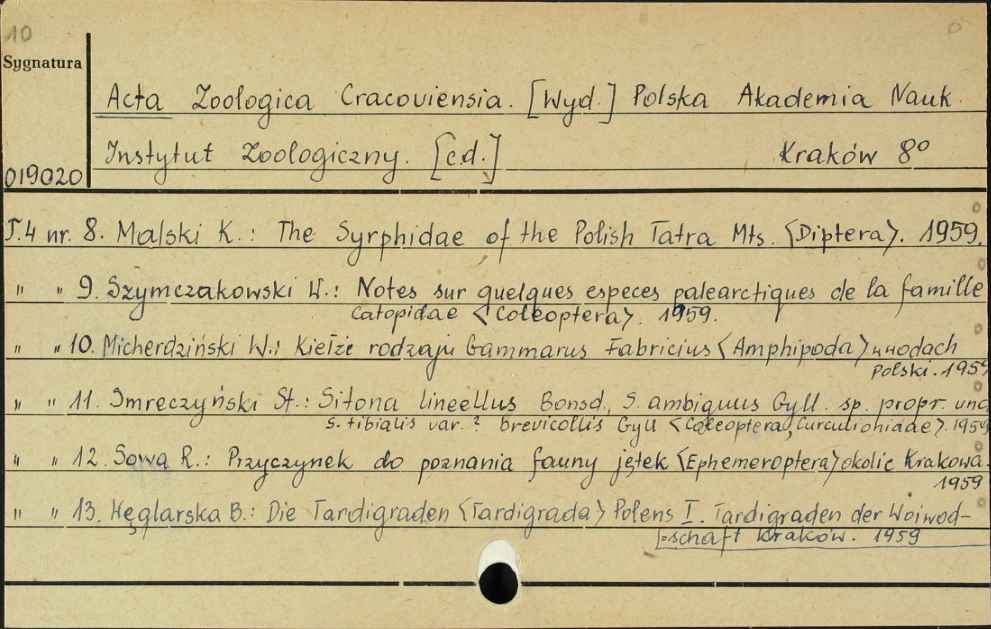 10
Sygnatura
Acta Zoologica Cracoviensia. [Wyd.] Polska Akademia Nauk.
Instytut Zoologiczny. [c.d.] Kraków 8º
019020
T.4 nr. 8. Malski K.: The Syrphidae of the Polish Tatra Mts. <Diptera>. 1959.
" " 9. Szymczakowski W.: Notes sur quelques especes palearctiques de la famille
Catopidae <Coleoptera>. 1959.
" " 10. Micherdziński W.: Kiełże rodzaju Gammarus Fabricius <Amphipoda> w wodach
Polski. 1959
" " 11. Smreczyński St.: Sitona lineellus Bonsd., S. ambiguus Gyll. sp. propr. und
S. tibialis var. ? brevicollis Gyll <Coleoptera, Curculionidae>. 1959
" " 12. Sowa R.: Przyczynek do poznania fauny jętek <Ephemeroptera> okolic Krakowa.
1959
" " 13. Węglarska B.: Die Tardigraden <Tardigrada> Polens I. Tardigraden der Woiwod-
schaft Kraków. 1959